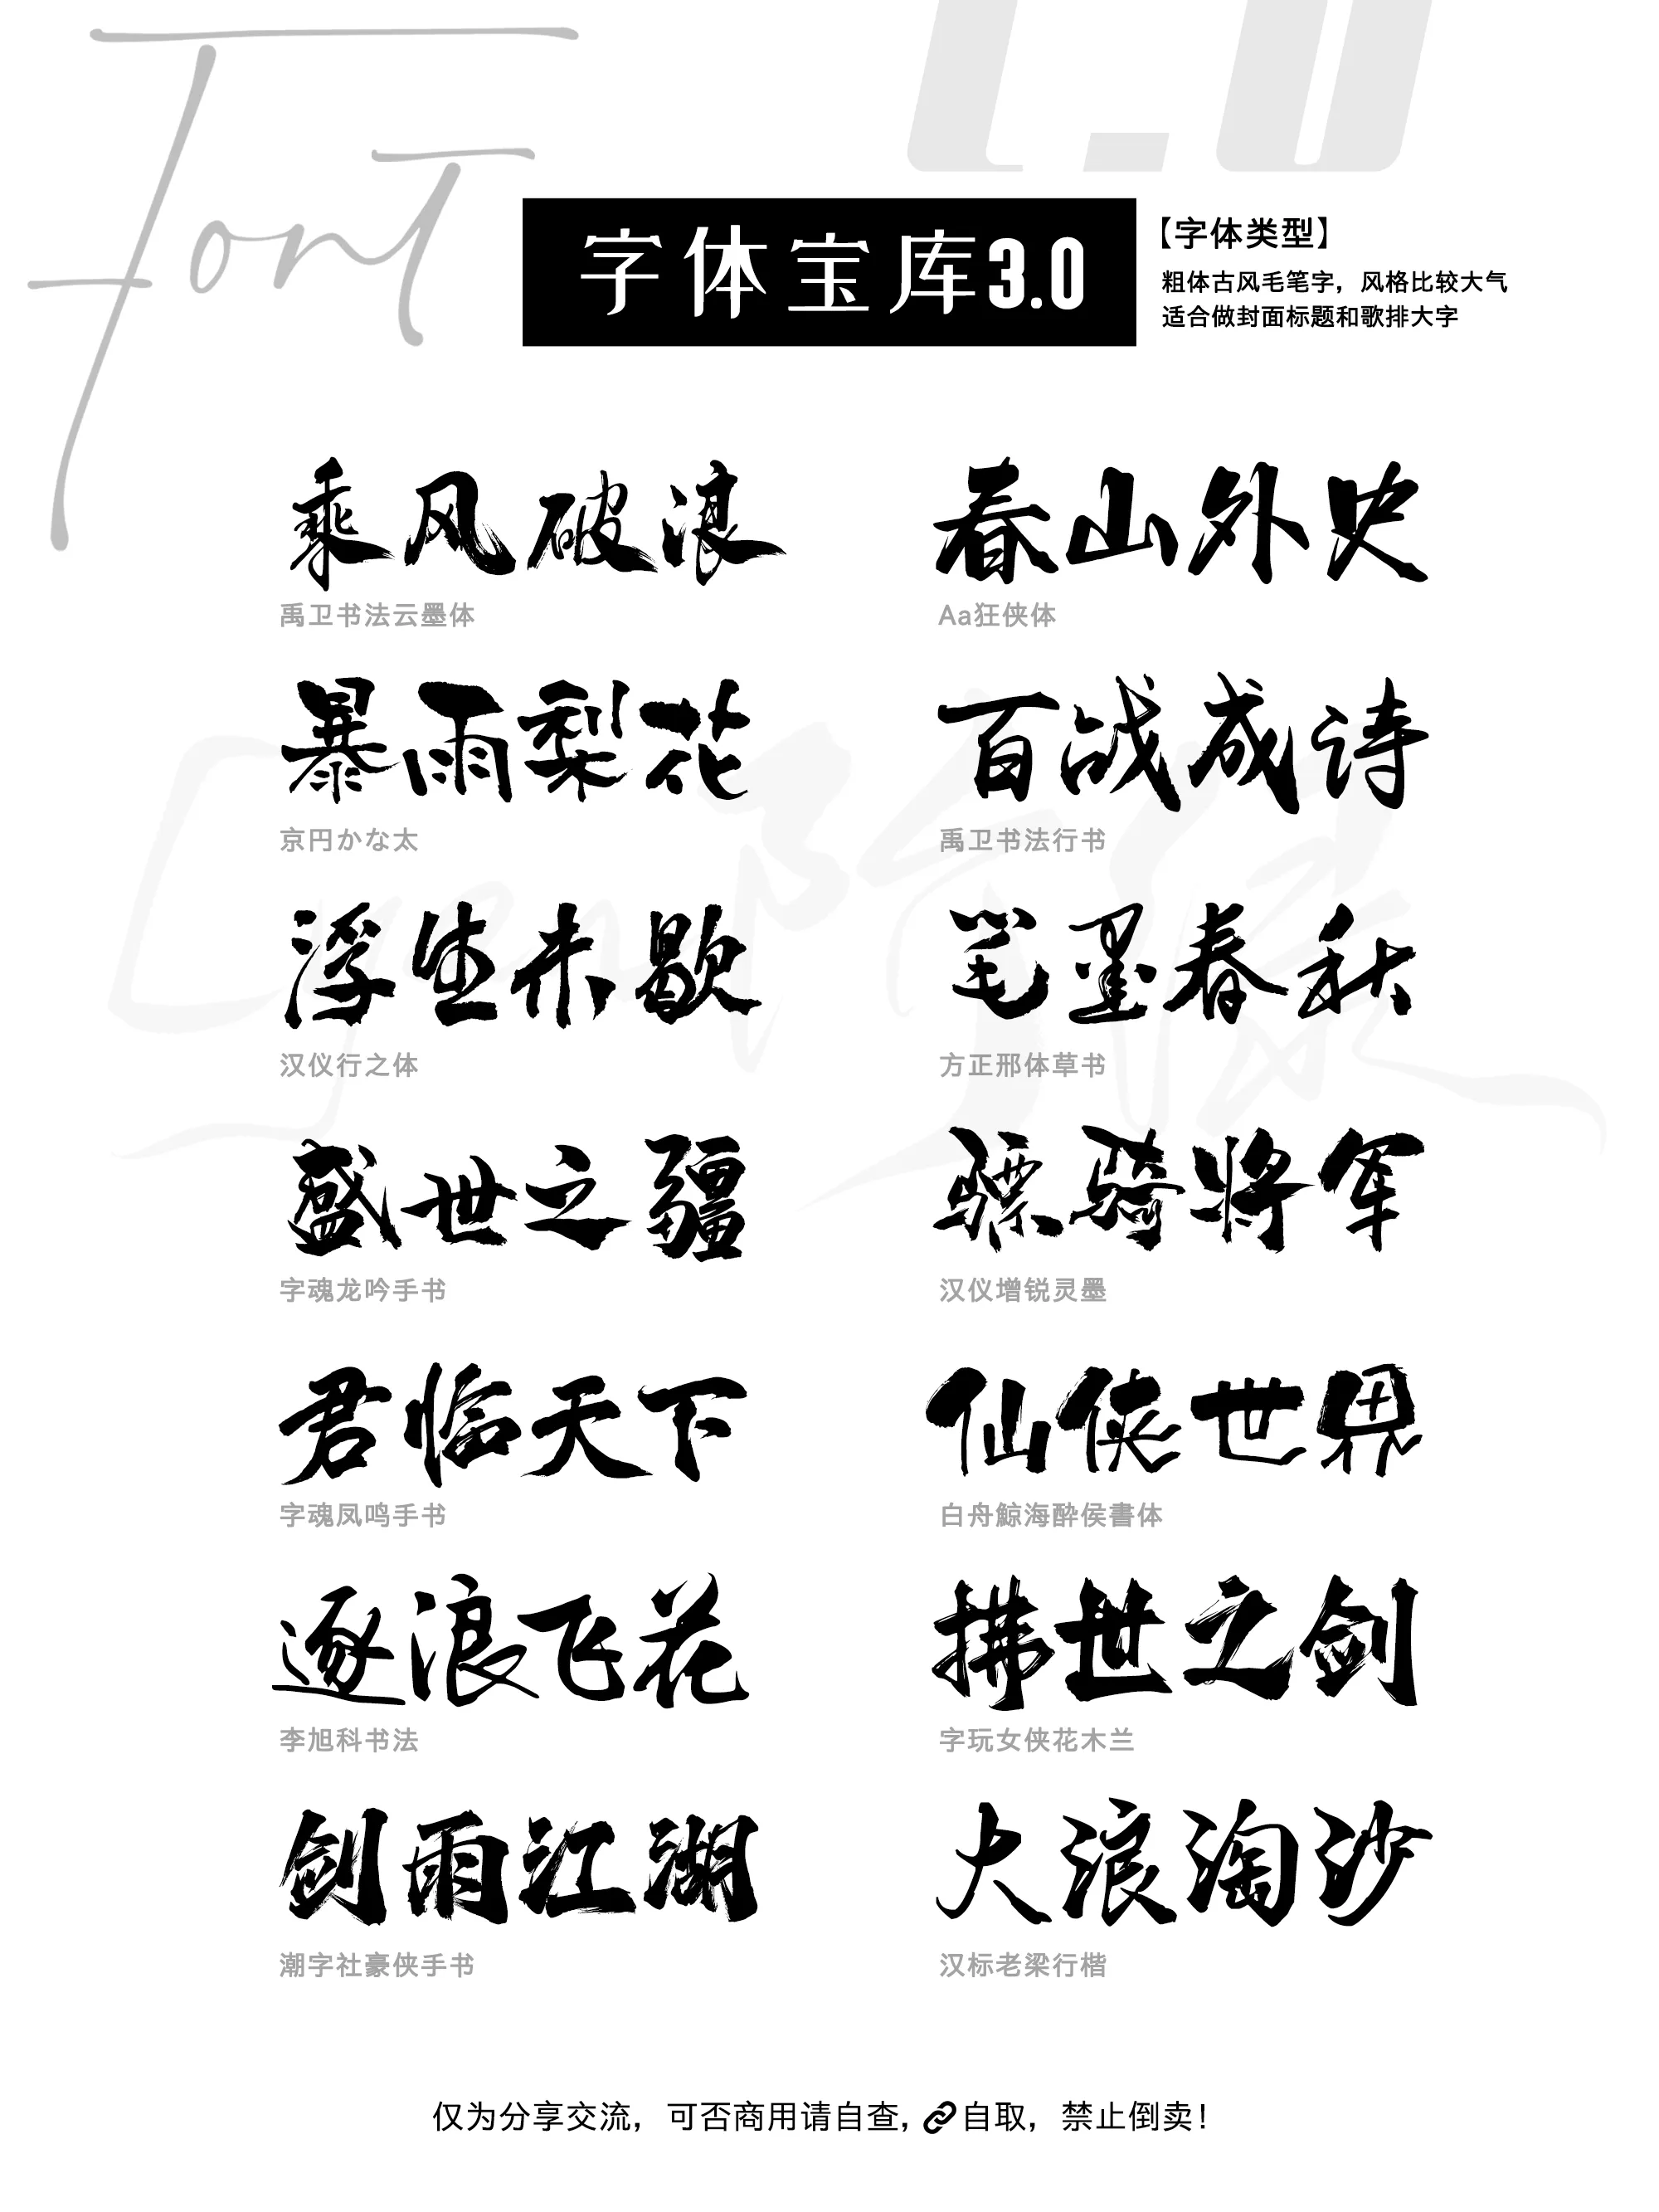 Font
字体宝库3.0
【字体类型】
粗体古风毛笔字，风格比较大气
适合做封面标题和歌排大字
乘风破浪
禹卫书法云墨体
春山外史
Aa狂侠体
暴雨梨花
京円かな太
百战成诗
禹卫书法行书
浮生未歇
汉仪行之体
笔墨春秋
方正邢体草书
盛世之疆
字魂龙吟手书
骠骑将军
汉仪增锐灵墨
君临天下
字魂凤鸣手书
仙侠世界
白舟鯨海酔侯書体
逐浪飞花
李旭科书法
拂世之剑
字玩女侠花木兰
剑雨江湖
潮字社豪侠手书
大浪淘沙
汉标老梁行楷
仅为分享交流，可否商用请自查，🔗自取，禁止倒卖！